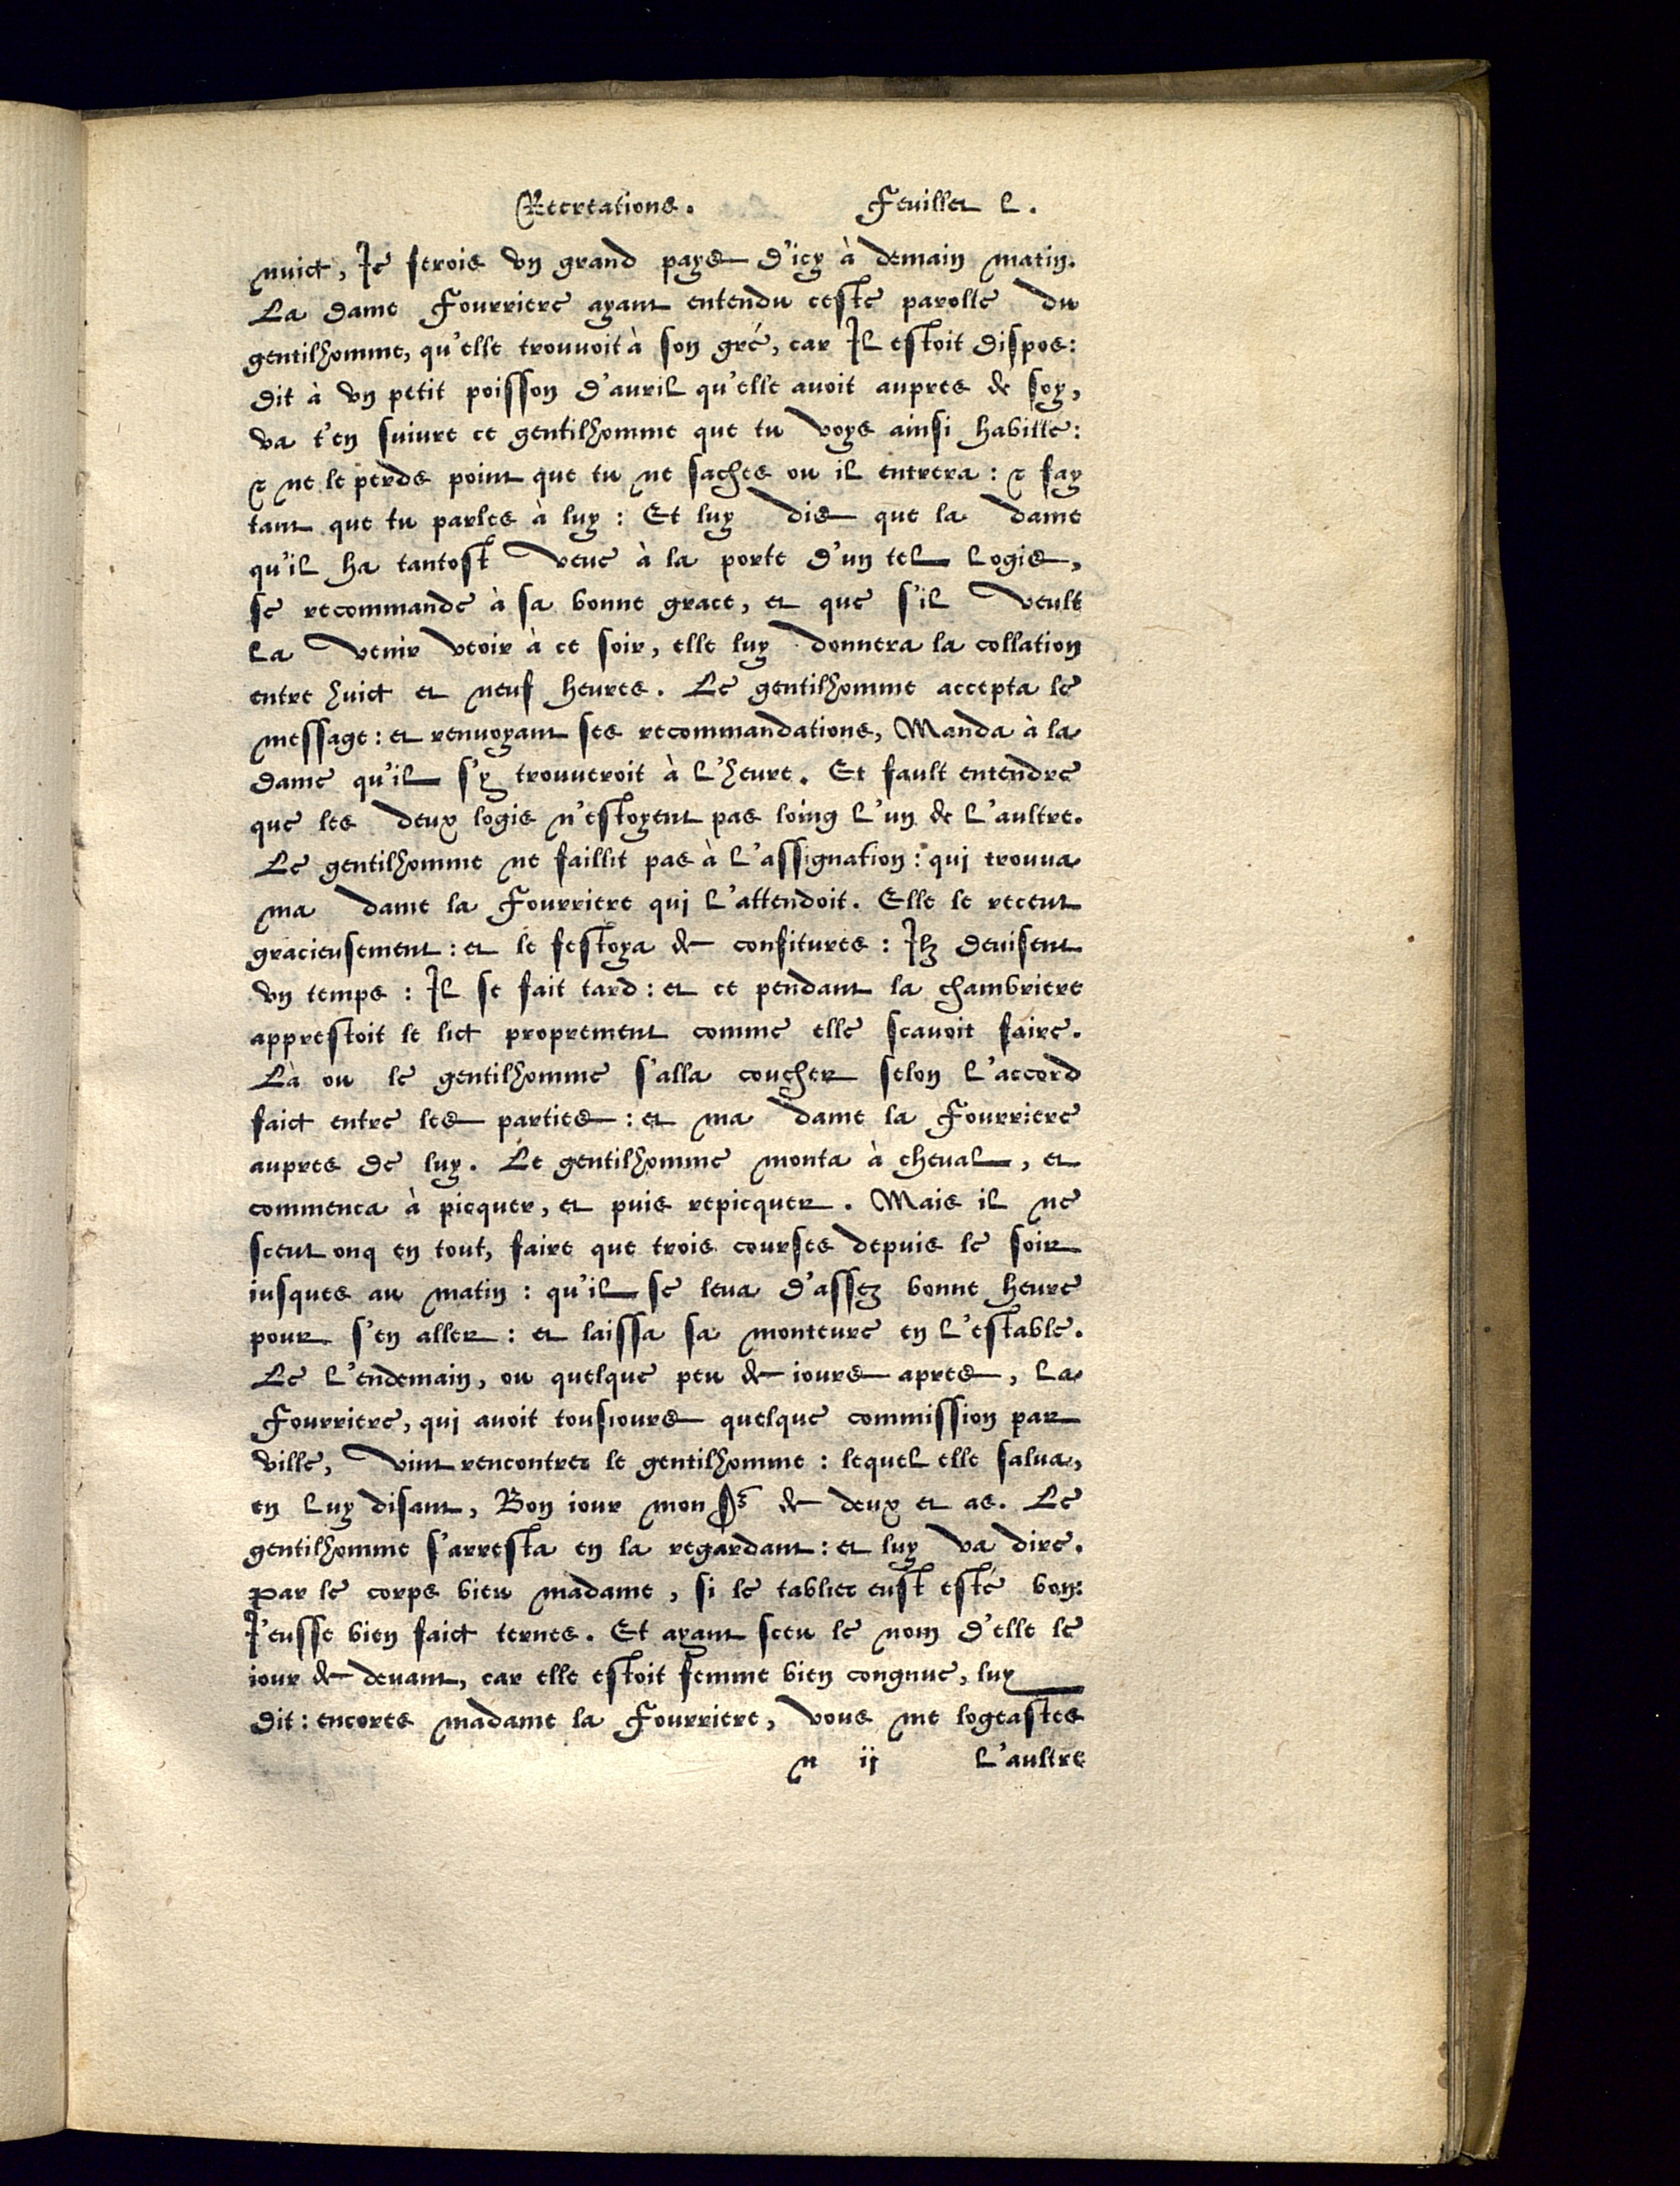 Recreations. Feuillet L.
nuict, Je ferois vn grand pays d'icy à demain matin.
La dame Fourriere ayant entendu ceste parolle du
gentilhomme, qu'elle trouuoit à son gré, car Il estoit dispos:
dit à vn petit poisson d'auril qu'elle auoit aupres de soy,
va t'en suiure ce gentilhomme que tu voys ainsi habillé:
& ne le perds point que tu ne saches ou il entrera: & fay
tant que tu parles à luy: Et luy dis que la dame
qu'il ha tantost veue à la porte d'un tel logis,
se recommande à sa bonne grace, et que s'il veult
la venir veoir à ce soir, elle luy donnera la collation
entre huict et neuf heures. Le gentilhomme accepta le
message: et renuoyant ses recommandations, Manda à la
dame qu'il s'y trouueroit à l'heure. Et fault entendre
que les deux logis n'estoyent pas loing l'un de l'aultre.
Le gentilhomme ne faillit pas à l'assignation: qui trouua
ma dame la Fourriere qui l'attendoit. Elle le receut
gracieusement: et le festoya de confitures: Ilz deuisent
vn temps: Il se fait tard: et ce pendant la chambriere
apprestoit le lict proprement comme elle scauoit faire.
Là ou le gentilhomme s'alla coucher selon l'accord
faict entre les parties: et ma dame la Fourriere
aupres de luy. Le gentilhomme monta à cheual, et
commenca à picquer, et puis repicquer. Mais il ne
sceut onq en tout, faire que trois courses depuis le soir
iusques au matin: qu'il se leua d'assez bonne heure
pour s'en aller: et laissa sa monteure en l'estable.
Le l'endemain, ou quelque peu de iours apres, la
Fourriere, qui auoit tousiours quelque commission par
ville, vint rencontrer le gentilhomme: lequel elle salua,
en luy disant, Bon iour mon Sr de deux et as. Le
gentilhomme s'arresta en la regardant: et luy va dire.
Par le corps bieu madame, si le tablier eust esté bon:
J'eusse bien faict ternes. Et ayant sceu le nom d'elle le
iour de deuant, car elle estoit femme bien congnue, luy
dit: encores madame la Fourriere, vous me logeastes
n ij L'aultre